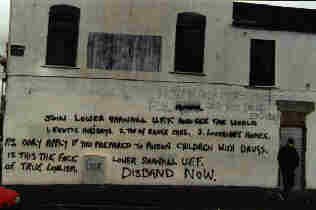 JOIN LOWER SHANKILL U.F.F. AND SEE THE WORLD
1. EXOTIC HOLIDAYS. 2. TOP OF RANGE CARS. 3. LUXURIOUS HOMES.
P.S. ONLY APPLY IF YOU PREPARED TO POISON CHILDREN WITH DRUGS.
IS THIS THE FACE LOWER SHANKILL U.F.F.
OF TRUE LOYALISM. DISBAND NOW.